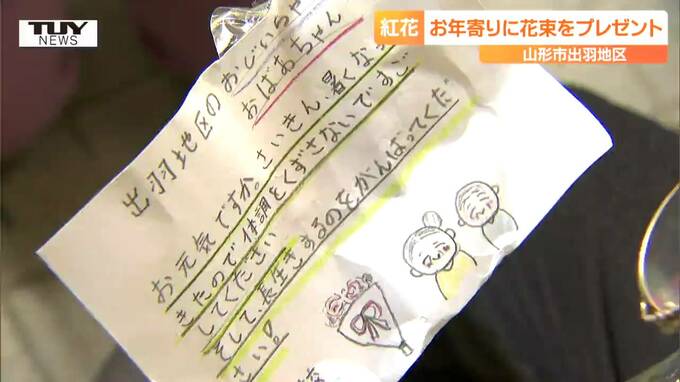 TUY
NEWS
紅花 お年寄りに花束をプレゼント
山形市出羽地区
出羽地区のおじいちゃん
おばあちゃん
お元気ですか。さいきん、暑くなって
きたので体調をくずさないですご
してください
そして、長生きするのをがんばってくだ
さい!